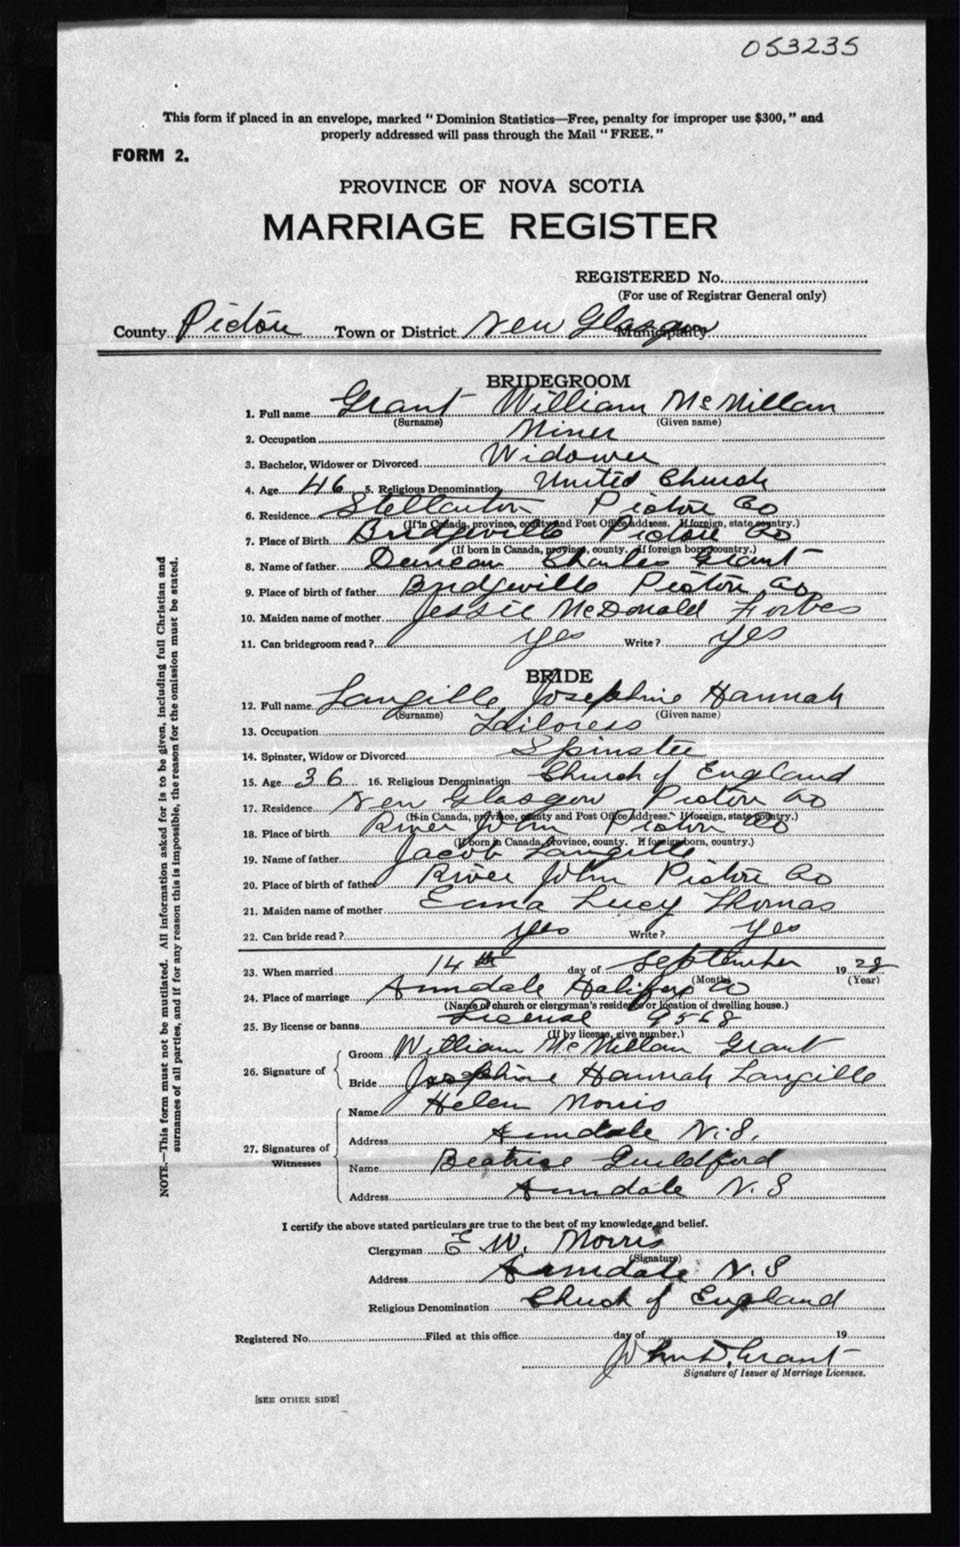 053235
This form if placed in an envelope, marked "Dominion Statistics—Free, penalty for improper use $300," and
properly addressed will pass through the Mail "FREE."
FORM 2.
PROVINCE OF NOVA SCOTIA
MARRIAGE REGISTER
REGISTERED No.
(For use of Registrar General only)
County Pictou Town or District New Glasgow Municipality
BRIDEGROOM
1. Full name Grant William McMillan
(Surname) (Given name)
2. Occupation Miner
3. Bachelor, Widower or Divorced Widower
4. Age 46 5. Religious Denomination United Church
6. Residence Stellarton Pictou Co
(If in Canada, province, county and Post Office address. If foreign, state country.)
7. Place of Birth Bridgeville Pictou Co
(If born in Canada, province, county. If foreign born, country.)
8. Name of father Duncan Charles Grant
9. Place of birth of father Bridgeville Pictou Co
10. Maiden name of mother Jessie McDonald Forbes
11. Can bridegroom read? yes Write? yes
BRIDE
12. Full name Langille Josephine Hannah
(Surname) (Given name)
13. Occupation Tailoress
14. Spinster, Widow or Divorced Spinster
15. Age 36 16. Religious Denomination Church of England
17. Residence New Glasgow Pictou Co
(If in Canada, province, county and Post Office Address. If foreign, state country.)
18. Place of birth River John Pictou Co
(If born in Canada, Province, county. If foreign born, country.)
19. Name of father Jacob Langille
20. Place of birth of father River John Pictou Co
21. Maiden name of mother Lucy Thomas
22. Can bride read? yes Write? yes
23. When married 14th day of September 1928
(Month) (Year)
24. Place of marriage Armdale Halifax Co
(Name of church or clergyman's residence or location of dwelling house.)
25. By license or banns License 9568
(If by license, give number.)
26. Signature of Groom William McMillan Grant
Bride Josephine Hannah Langille
27. Signatures of Witnesses
Name Helen Morris
Address Armdale N.S.
Name Beatrice Guildford
Address Armdale N.S
I certify the above stated particulars are true to the best of my knowledge and belief.
Clergyman E W. Morris
(Signature)
Address Armdale N.S
Religious Denomination Church of England
Registered No. Filed at this office day of 19
John D. Grant
Signature of Issuer of Marriage Licenses.
[SEE OTHER SIDE]
NOTE.—This form must not be mutilated. All information asked for is to be given, including full Christian and
surnames of all parties, and if for any reason this is impossible, the reason for the omission must be stated.